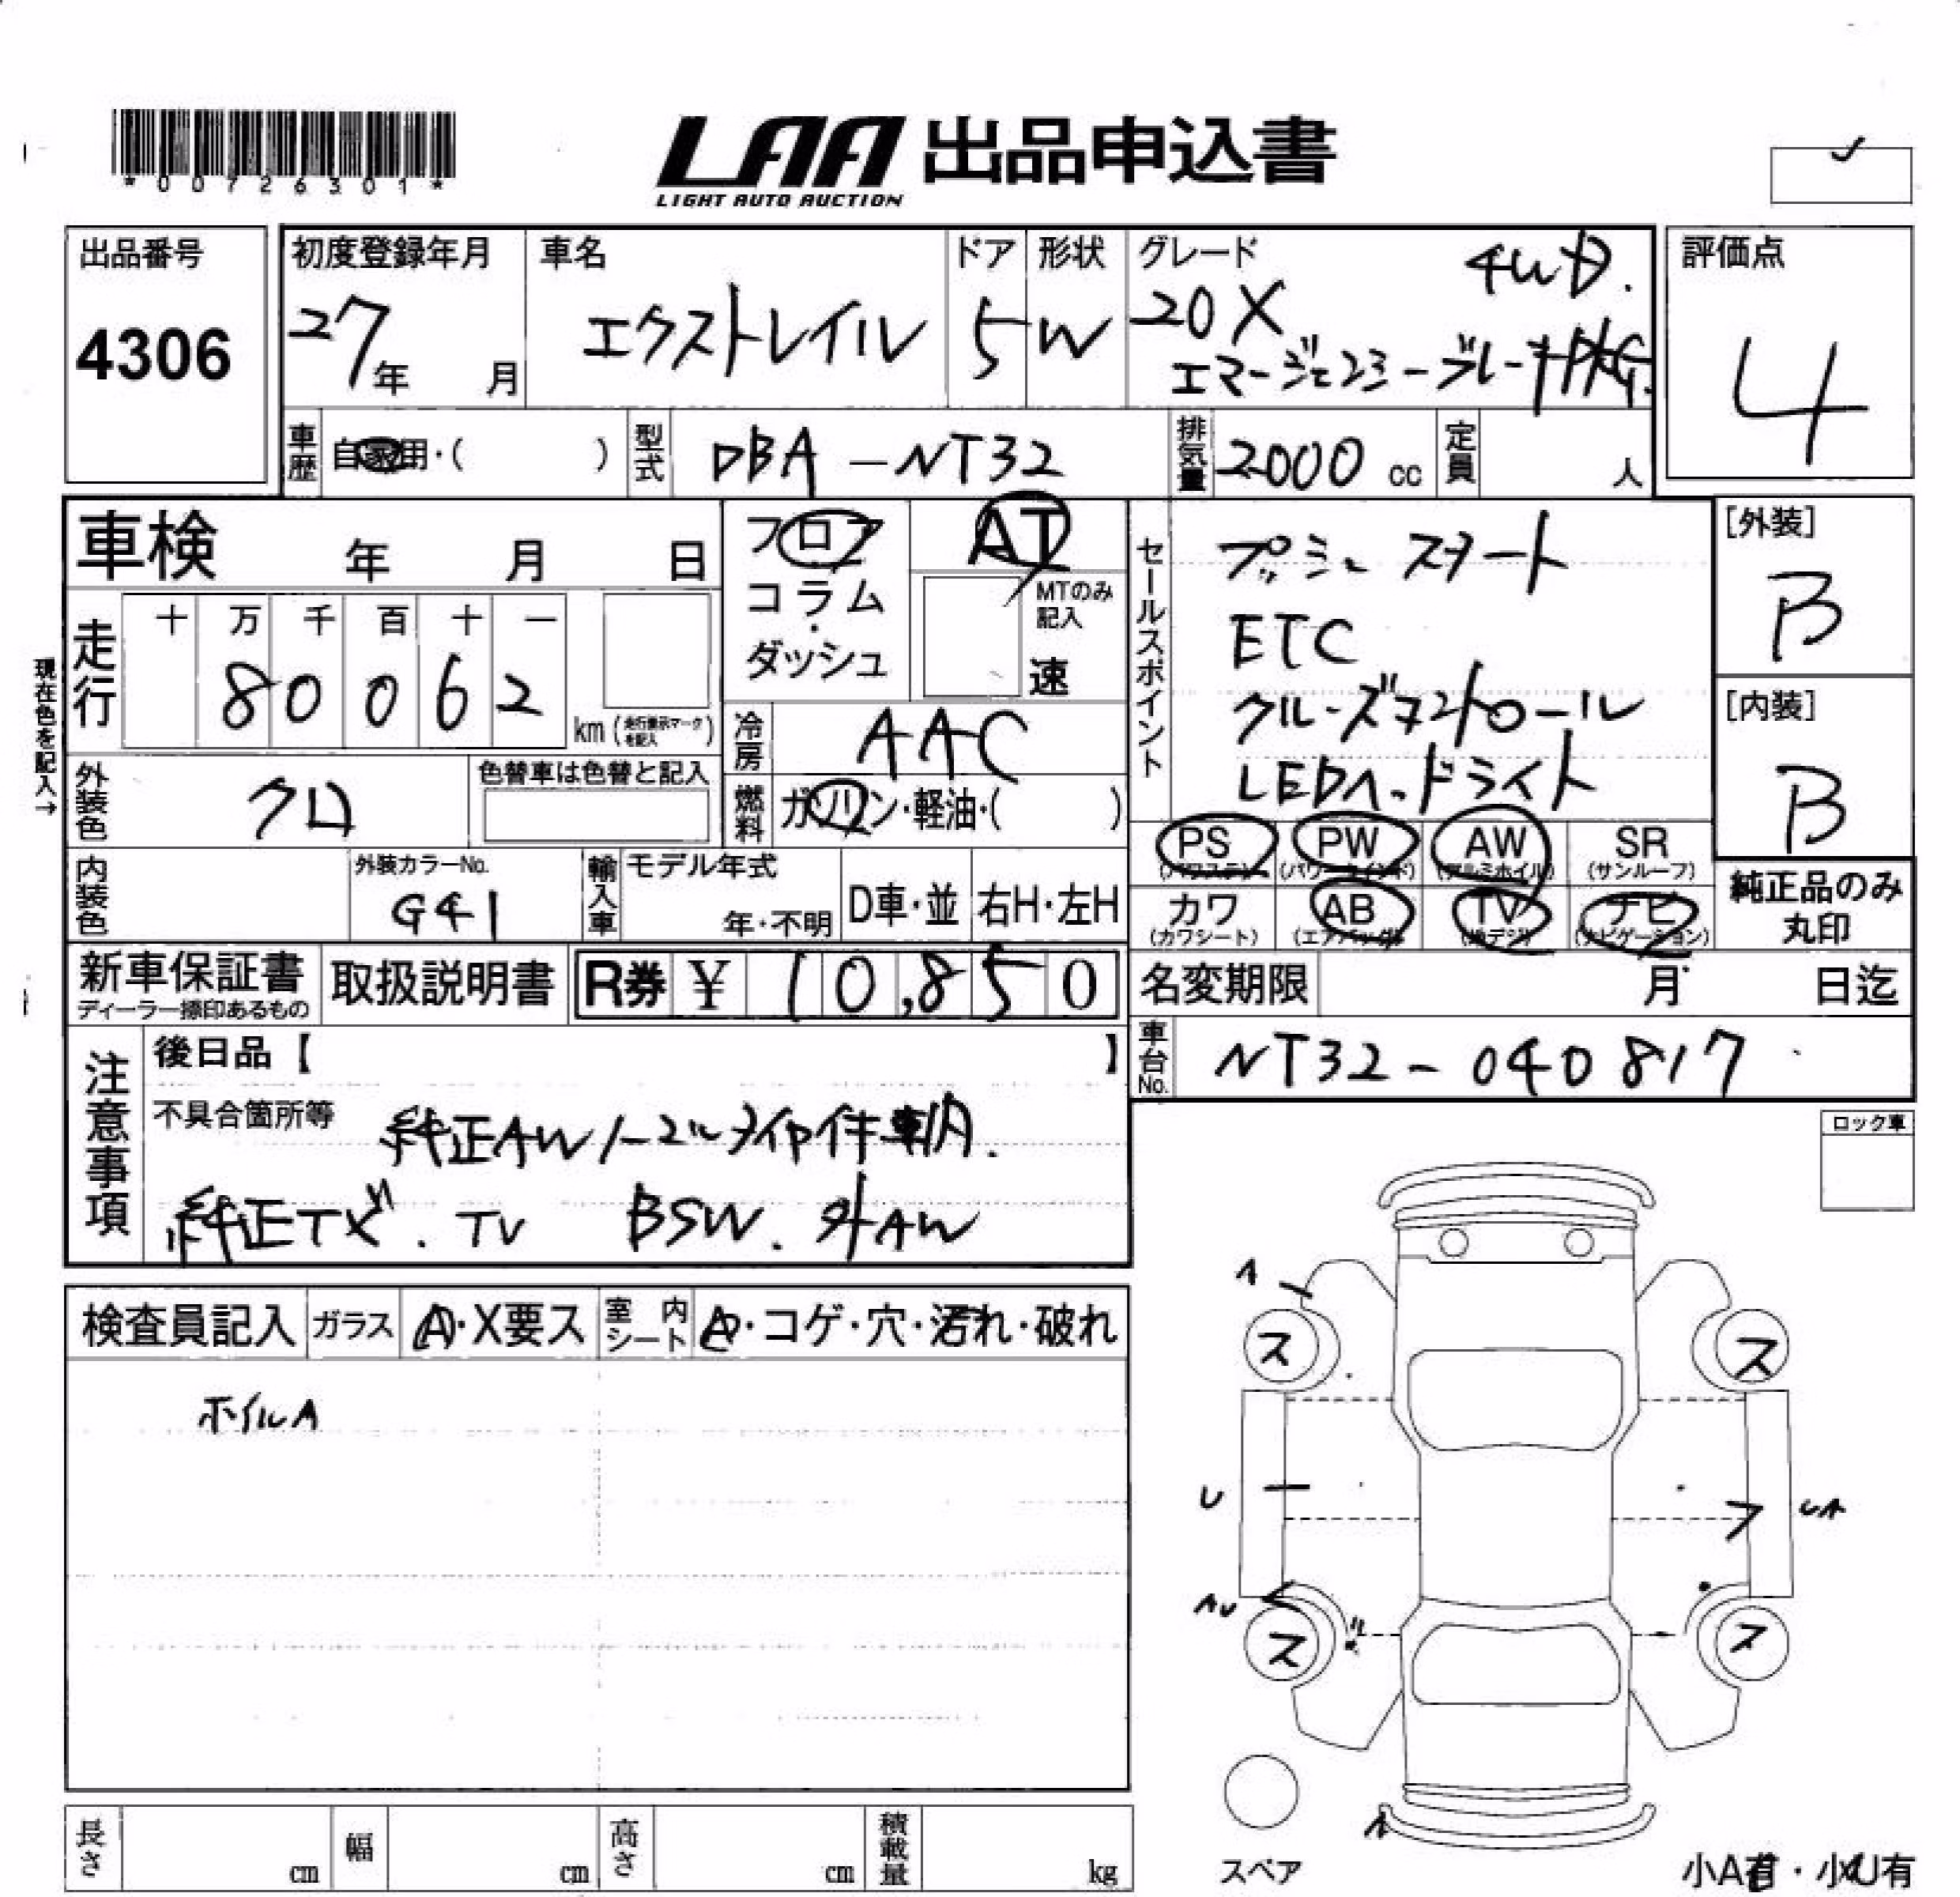 *00726301*
LAA 出品申込書
LIGHT AUTO AUCTION
出品番号
4306
初度登録年月
27年 月
車名
エクストレイル
ドア
5
形状
W
グレード
4WD.
20X
エマージェンシーブレーキPKG.
評価点
4
車歴
自家用・( )
型式
DBA-NT32
排気量
2000 cc
定員
人
車検 年 月 日
フロア
コラム
・
ダッシュ
AT
MTのみ
記入
速
セールスポイント
プッシュスタート
ETC
クルーズコントロール
LEDヘッドライト
[外装]
B
[内装]
B
現在色を記入→
走行
十 万 千 百 十 一
8 0 0 6 2
km (走行表示マークを記入)
冷房
AAC
外装色
クロ
色替車は色替と記入
燃料
ガソリン・軽油・( )
PS PW AW SR
(パワステ) (パワーウインド) (アルミホイル) (サンルーフ)
カワ AB TV ナビ
(カワシート) (エアバッグ) (地デジ) (ナビゲーション)
純正品のみ
丸印
内装色
外装カラーNo.
G41
輸入車
モデル年式
年・不明
D車・並
右H・左H
新車保証書
ディーラー捺印あるもの
取扱説明書
R券 ¥ 10,850
名変期限 月 日迄
車台No.
NT32-040817
注意事項
後日品【 】
不具合箇所等
純正AWノーマルタイヤ付車内.
純正ナビ.TV BSW.外AW
ロック車
検査員記入
ガラス
A・X要ス
室内シート
A・コゲ・穴・汚れ・破れ
ホイルA
A
ス ス
U
UA
AU
ス ス
A
スペア
小A有・小U有
長さ cm
幅 cm
高さ cm
積載量 kg